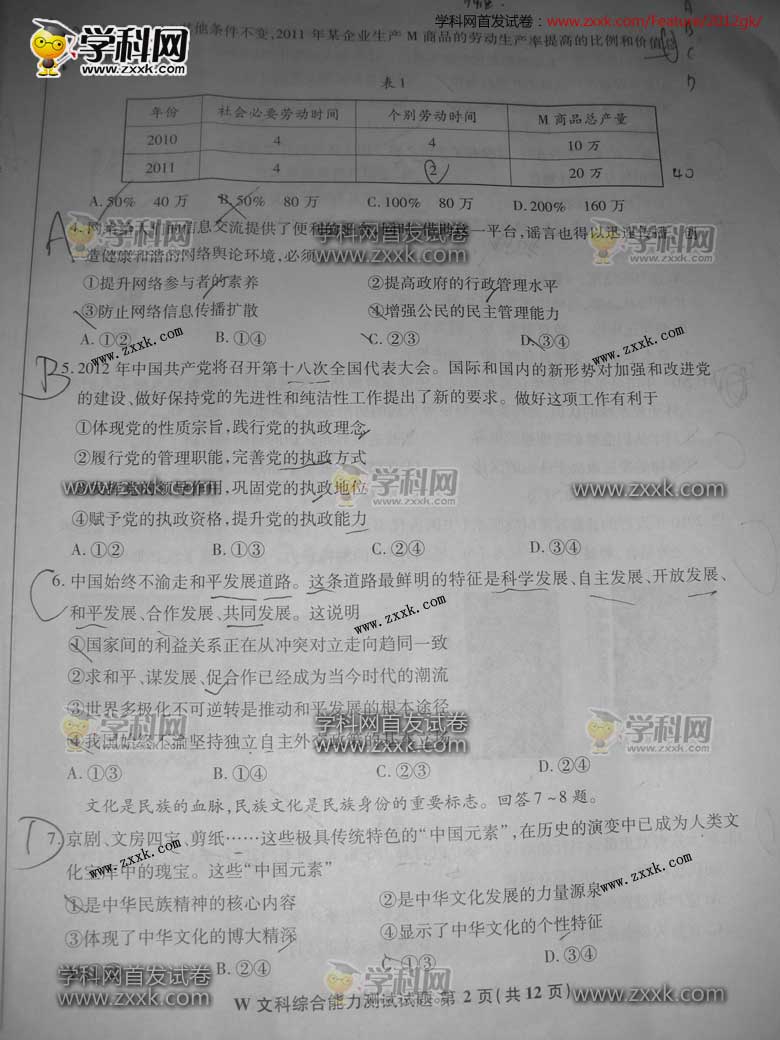 学科网首发:www.zxxk.com/Feature/2012gk/
学科网 zxxk.com
其他条件不变,2011 年某企业生产 M 商品的劳动生产率提高的比例和价值
A
B
C
D
表1
年份 社会必要劳动时间 个别劳动时间 M 商品总产量
2010 4 4 10 万
2011 4 2 20 万
40
A. 50% 40 万 B. 50% 80 万 C. 100% 80 万 D. 200% 160 万
A
4. 网络给人们的信息交流提供了便利的平台,一平台,谣言也得以迅速传播。创
学科网 zxxk.com
学科网首发试卷 www.zxxk.com
学科网 zxxk.com
造健康和谐的网络舆论环境,必须
①提升网络参与者的素养 ②提高政府的行政管理水平
③防止网络信息传播扩散 ④增强公民的民主管理能力
A. ①② B. ①④ C. ②③ D. ③④
www.zxxk.com
www.zxxk.com
B
5. 2012 年中国共产党将召开第十八次全国代表大会。国际和国内的新形势对加强和改进党
的建设、做好保持党的先进性和纯洁性工作提出了新的要求。做好这项工作有利于
①体现党的性质宗旨,践行党的执政理念
②履行党的管理职能,完善党的执政方式
作用,巩固党的执政地位
学科网首发试卷 www.zxxk.com
学科网 zxxk.com
学科网首发试卷 www.zxxk.com
④赋予党的执政资格,提升党的执政能力
A. ①② B. ①③ C. ②④ D. ③④
C
6. 中国始终不渝走和平发展道路。这条道路最鲜明的特征是科学发展、自主发展、开放发展、
和平发展、合作发展、共同发展。这说明
www.zxxk.com
www.zxxk.com
①国家间的利益关系正在从冲突对立走向趋同一致
②求和平、谋发展、促合作已经成为当今时代的潮流
③世界多极化不可逆转是推动和平发展的根本途径
④我国始终不渝坚持独立自主外交政策的基本立场
学科网 zxxk.com
学科网首发试卷 www.zxxk.com
学科网 zxxk.com
A. ①③ B. ①④ C. ②③ D. ②④
文化是民族的血脉,民族文化是民族身份的重要标志。回答 7~8 题。
D
7. 京剧、文房四宝、剪纸……这些极具传统特色的“中国元素”,在历史的演变中已成为人类文
化宝库中的瑰宝。这些“中国元素”
www.zxxk.com
www.zxxk.com
①是中华民族精神的核心内容 ②是中华文化发展的力量源泉
③体现了中华文化的博大精深 ④显示了中华文化的个性特征
B. ②④ C. ①③ D. ③④
学科网首发试卷 www.zxxk.com
学科网 zxxk.com
学科网首发试卷 www.zxxk.com
W 文科综合能力测试试题 第 2 页(共 12 页)